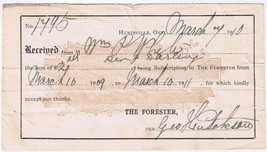 No. 1795
HUNTSVILLE, ONT. March 7 1910
Received from Wm
the sum of $2 being Subscription to THE FORESTER from
March 10 1909 to March 10 1911, for which kindly
accept our thanks.
THE FORESTER,
PER Geo Hutcheson